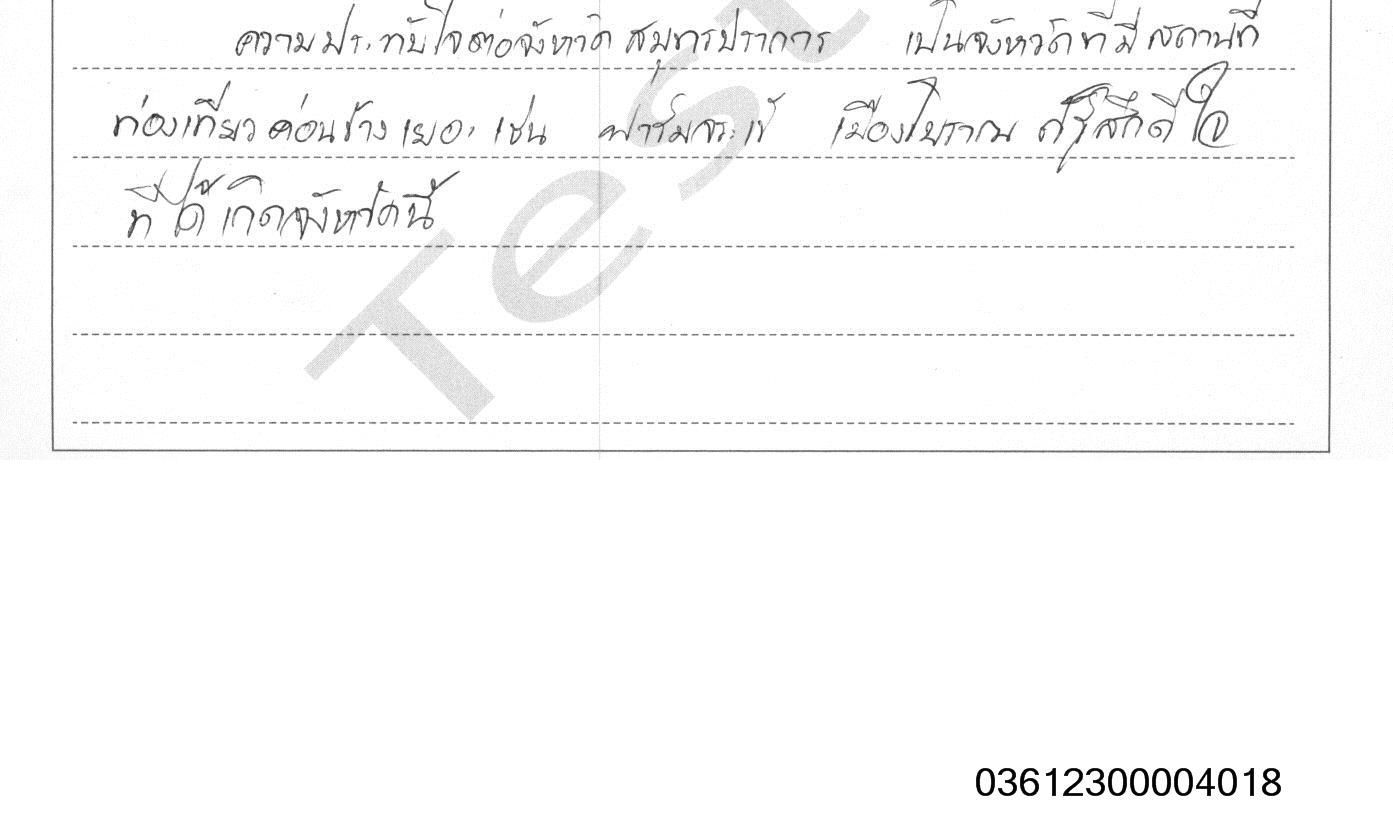 ความประทับใจต่อจังหวัด สมุทรปราการ เป็นจังหวัดที่มีสถานที่
ท่องเที่ยวค่อนข้างเยอะ เช่น ฟาร์มจระเข้ เมืองโบราณ ก็รู้สึกดีใจ
ที่ได้เกิดจังหวัดนี้
Test
03612300004018